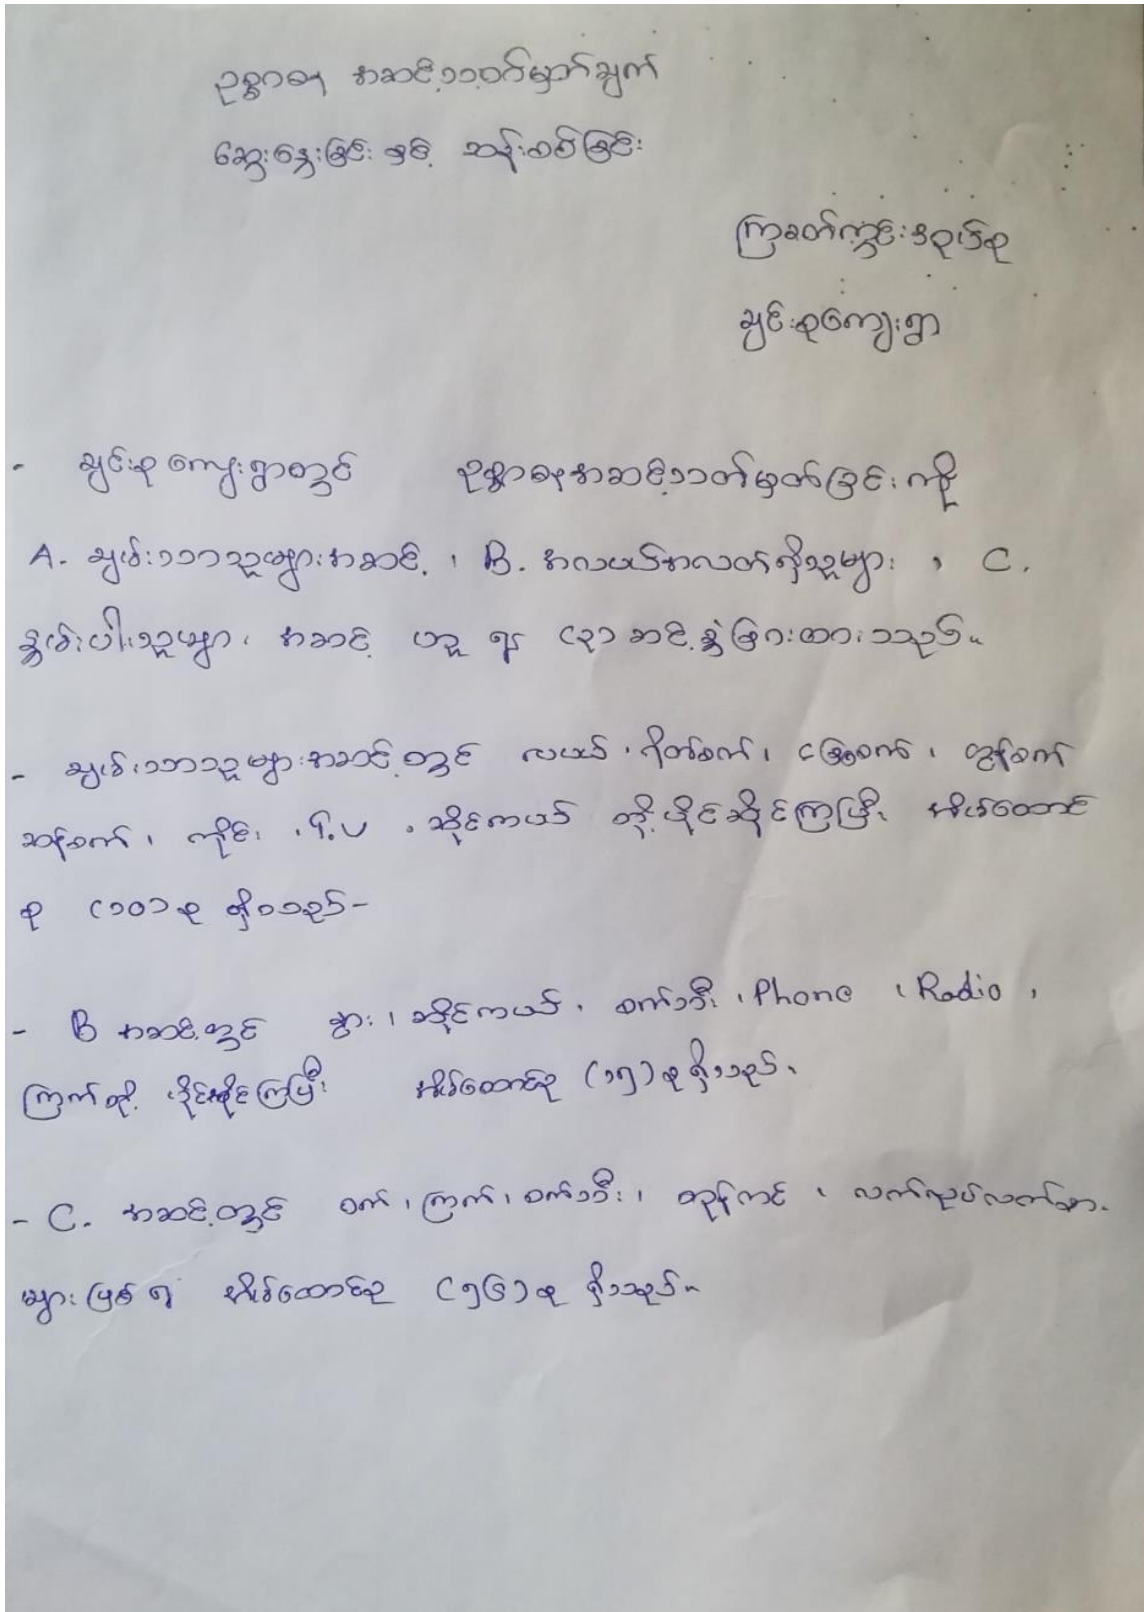 ဥစ္စာဓန အဆင့်သတ်မှတ်ချက်
ဆွေးနွေးခြင်း နှင့် ဆန်းစစ်ခြင်း
ကြခတ်ကွင်းအုပ်စု
ချင်းစုကျေးရွာ
- ချင်းစုကျေးရွာတွင် ဥစ္စာဓနအဆင့်သတ်မှတ်ခြင်းကို
A. ချမ်းသာသူများအဆင့်၊ B. အလယ်အလတ်ရှိသူများ ၊ C.
နွမ်းပါးသူများ အဆင့် ဟူ ၍ (၃) ဆင့်ခွဲခြားထားသည်။
- ချမ်းသာသူများအဆင့်တွင် လယ်၊ ရိတ်စက်၊ ခြွေစက်၊ ထွန်စက်
ဆန်စက်၊ ကိုင်း ၊ T.V ၊ ဆိုင်ကယ် တို့ပိုင်ဆိုင်ကြပြီး အိမ်ထောင်
စု (၁၀) စု ရှိသည်-
- B အဆင့်တွင် နွား၊ ဆိုင်ကယ်၊ စက်ဘီး ၊ Phone ၊ Radio ၊
ကြက်တို့ ပိုင်ဆိုင်ကြပြီး အိမ်ထောင်စု (၁၅) စုရှိသည်။
- C. အဆင့်တွင် ဝက်၊ ကြက်၊ စက်ဘီး၊ ၊ လက်လုပ်လက်စား
များဖြစ်၍ အိမ်ထောင်စု (၅၆) စု ရှိသည်။